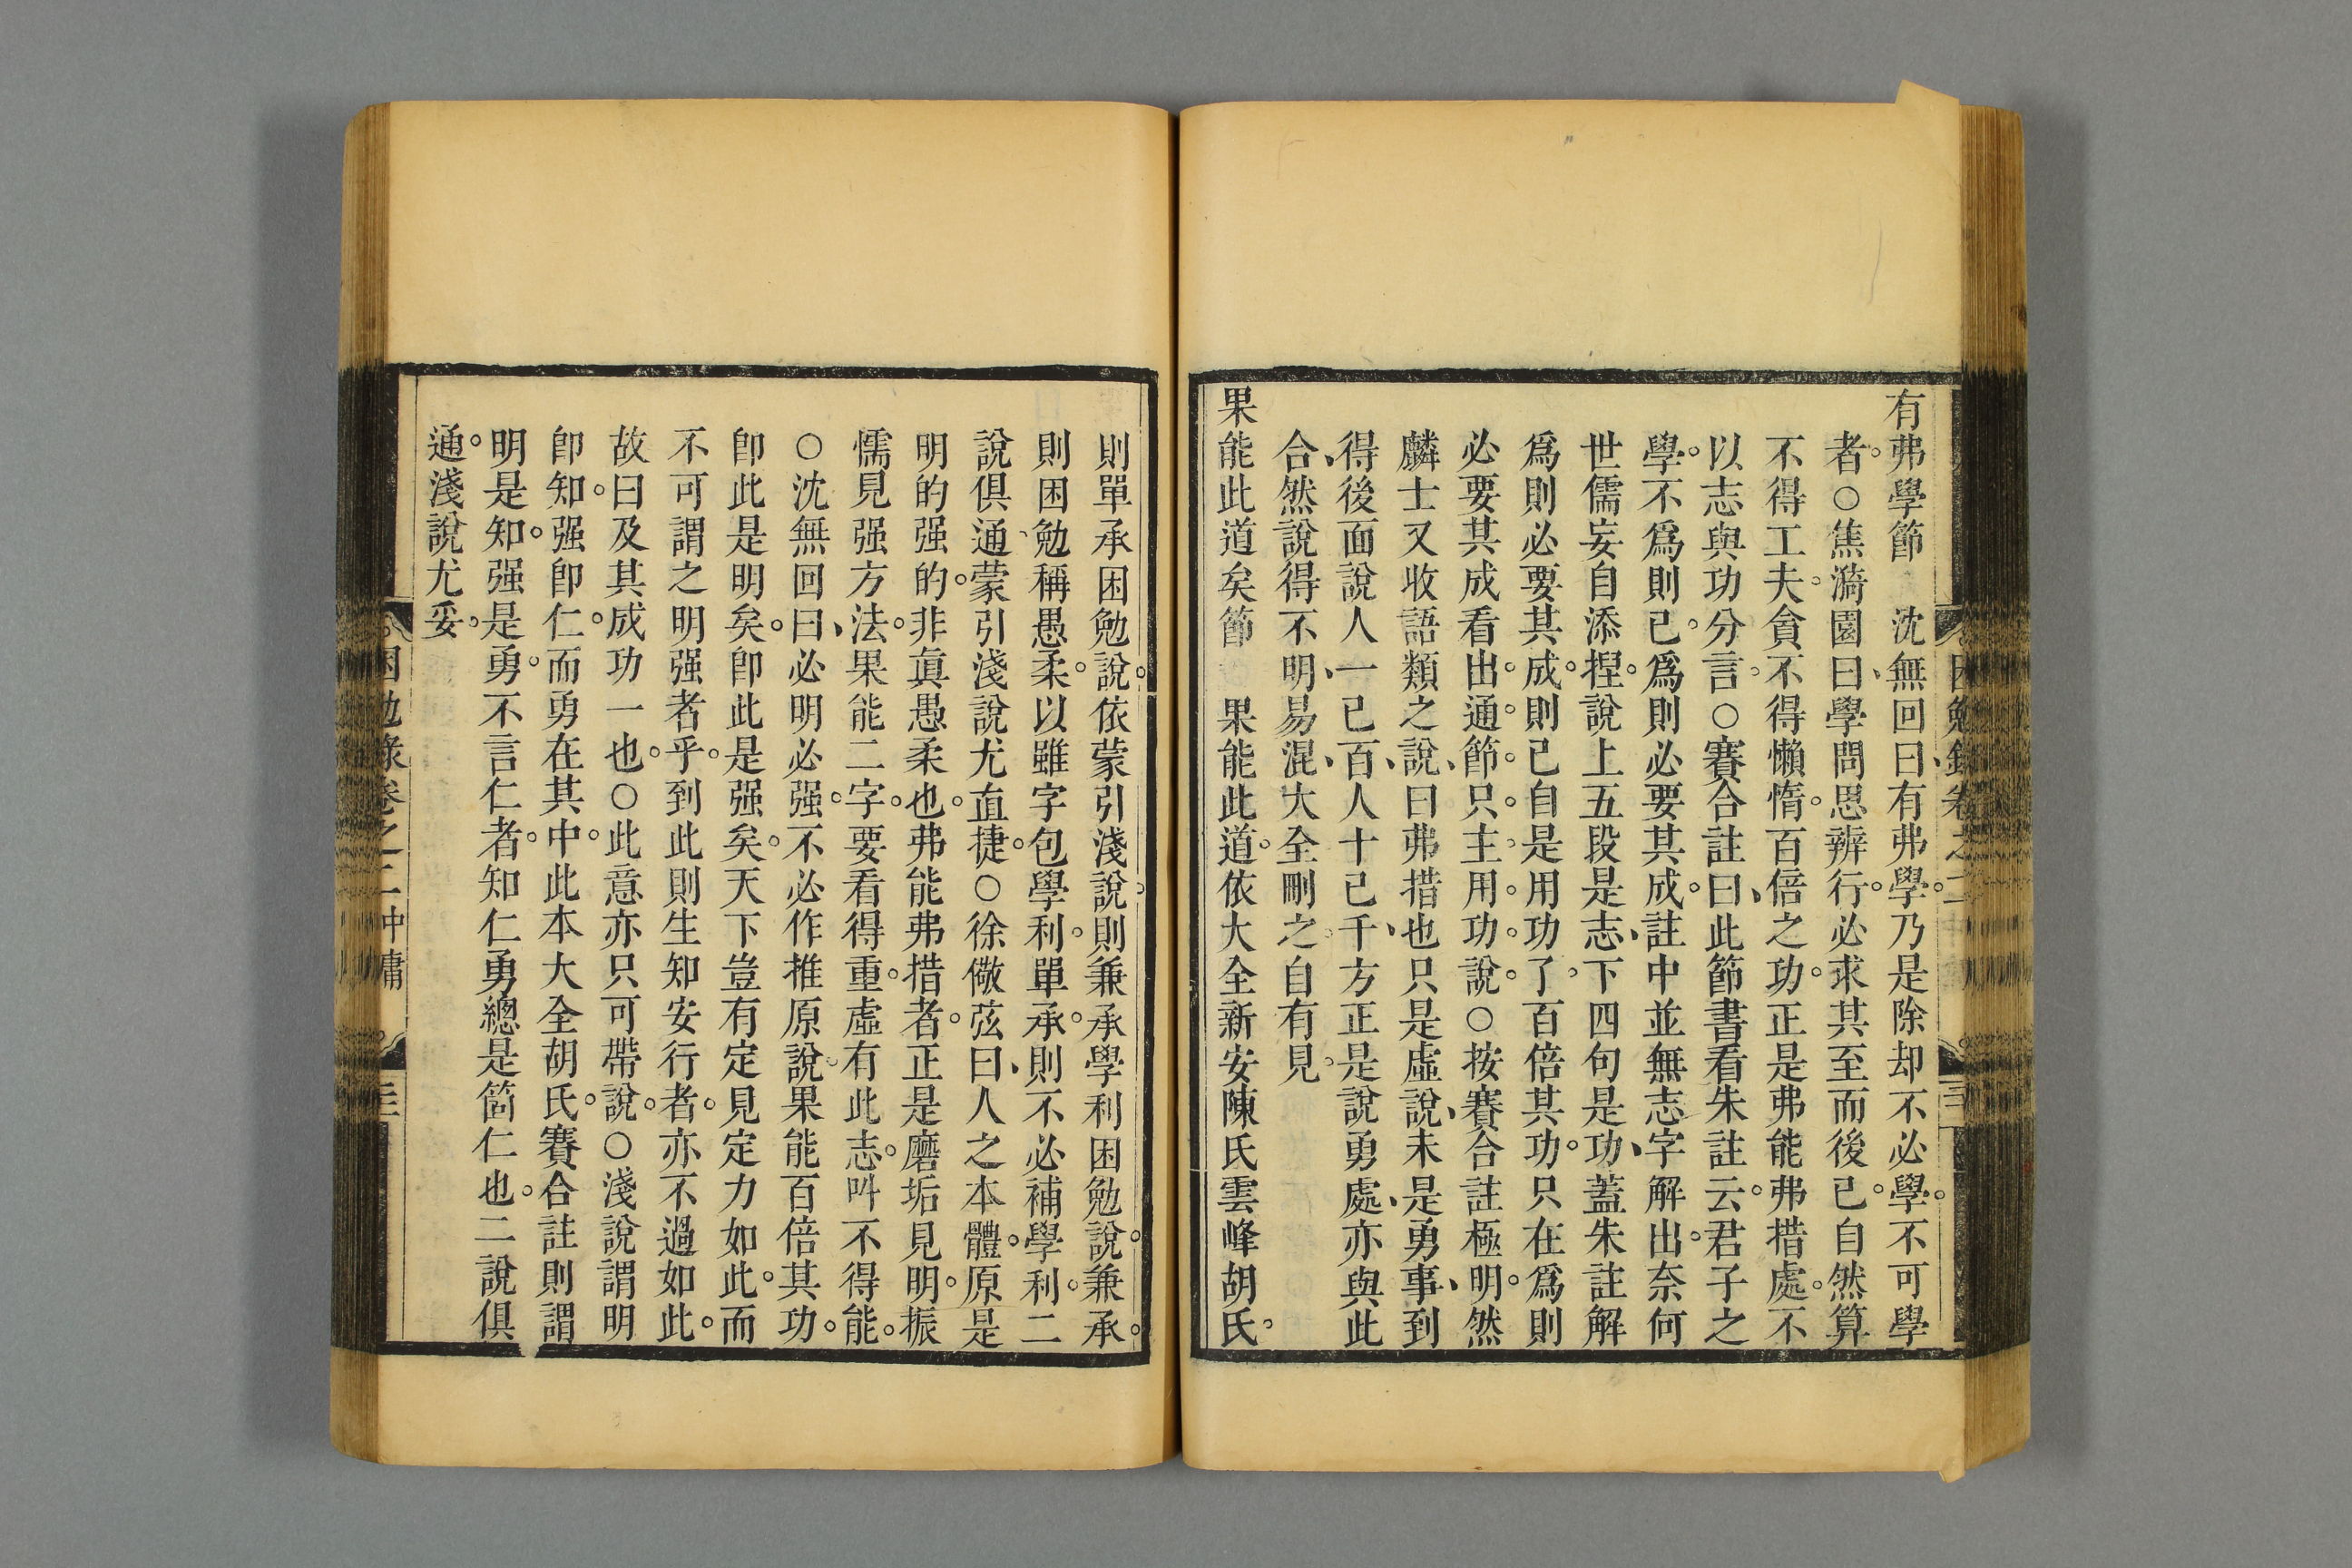 有弗學節　沈無回曰有弗學乃是除却不必學不可學
者○焦漪園曰學問思辨行必求其至而後已自然算
不得工夫貪不得懶惰百倍之功正是弗能弗措處不
以志與功分言○賽合註曰此節書看朱註云君子之
學不爲則已爲則必要其成註中並無志字解出奈何
世儒妄自添捏說上五段是志下四句是功蓋朱註解
爲則必要其成則已自是用功了百倍其功只在爲則
必要其成看出通節只主用功說○按賽合註極明然
麟士又收語類之說曰弗措也只是虛說未是勇事到
得後面說人一已百人十已千方正是說勇處亦與此
合然說得不明易混大全刪之自有見
果能此道矣節　果能此道依大全新安陳氏雲峰胡氏
則單承困勉說依蒙引淺說則兼承學利困勉說兼承
則困勉稱愚柔以雖字包學利單承則不必補學利二
說俱通蒙引淺說尤直捷○徐儆弦曰人之本體原是
明的强的非眞愚柔也弗能弗措者正是磨垢見明振
懦見强方法果能二字要看得重虛有此志叫不得能
○沈無回曰必明必强不必作推原說果能百倍其功
卽此是明矣卽此是强矣天下豈有定見定力如此而
不可謂之明强者乎到此則生知安行者亦不過如此
故曰及其成功一也○此意亦只可帶說○淺說謂明
卽知强卽仁而勇在其中此本大全胡氏賽合註則謂
明是知强是勇不言仁者知仁勇總是箇仁也二說俱
通淺說尤妥
困勉錄卷之二中庸